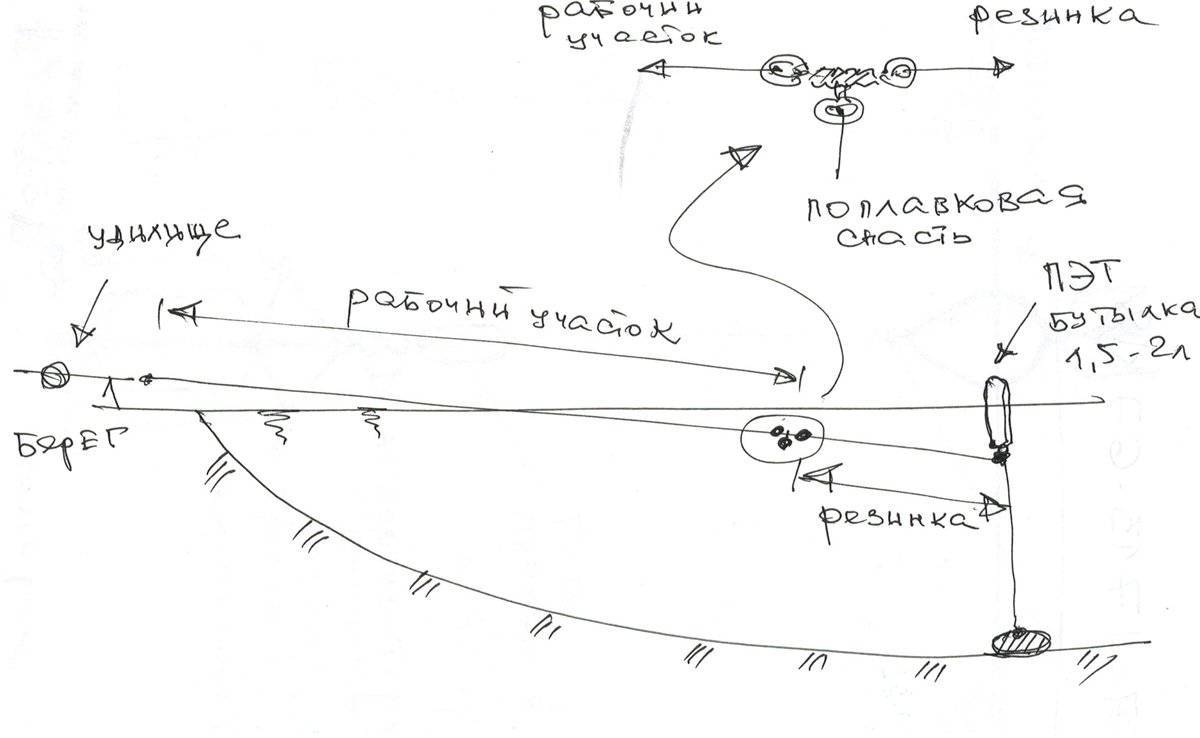 рабочий
участок
резинка
поплавковая
снасть
удилище
ПЭТ
бутылка
1,5-2л
рабочий участок
БЕРЕГ
резинка